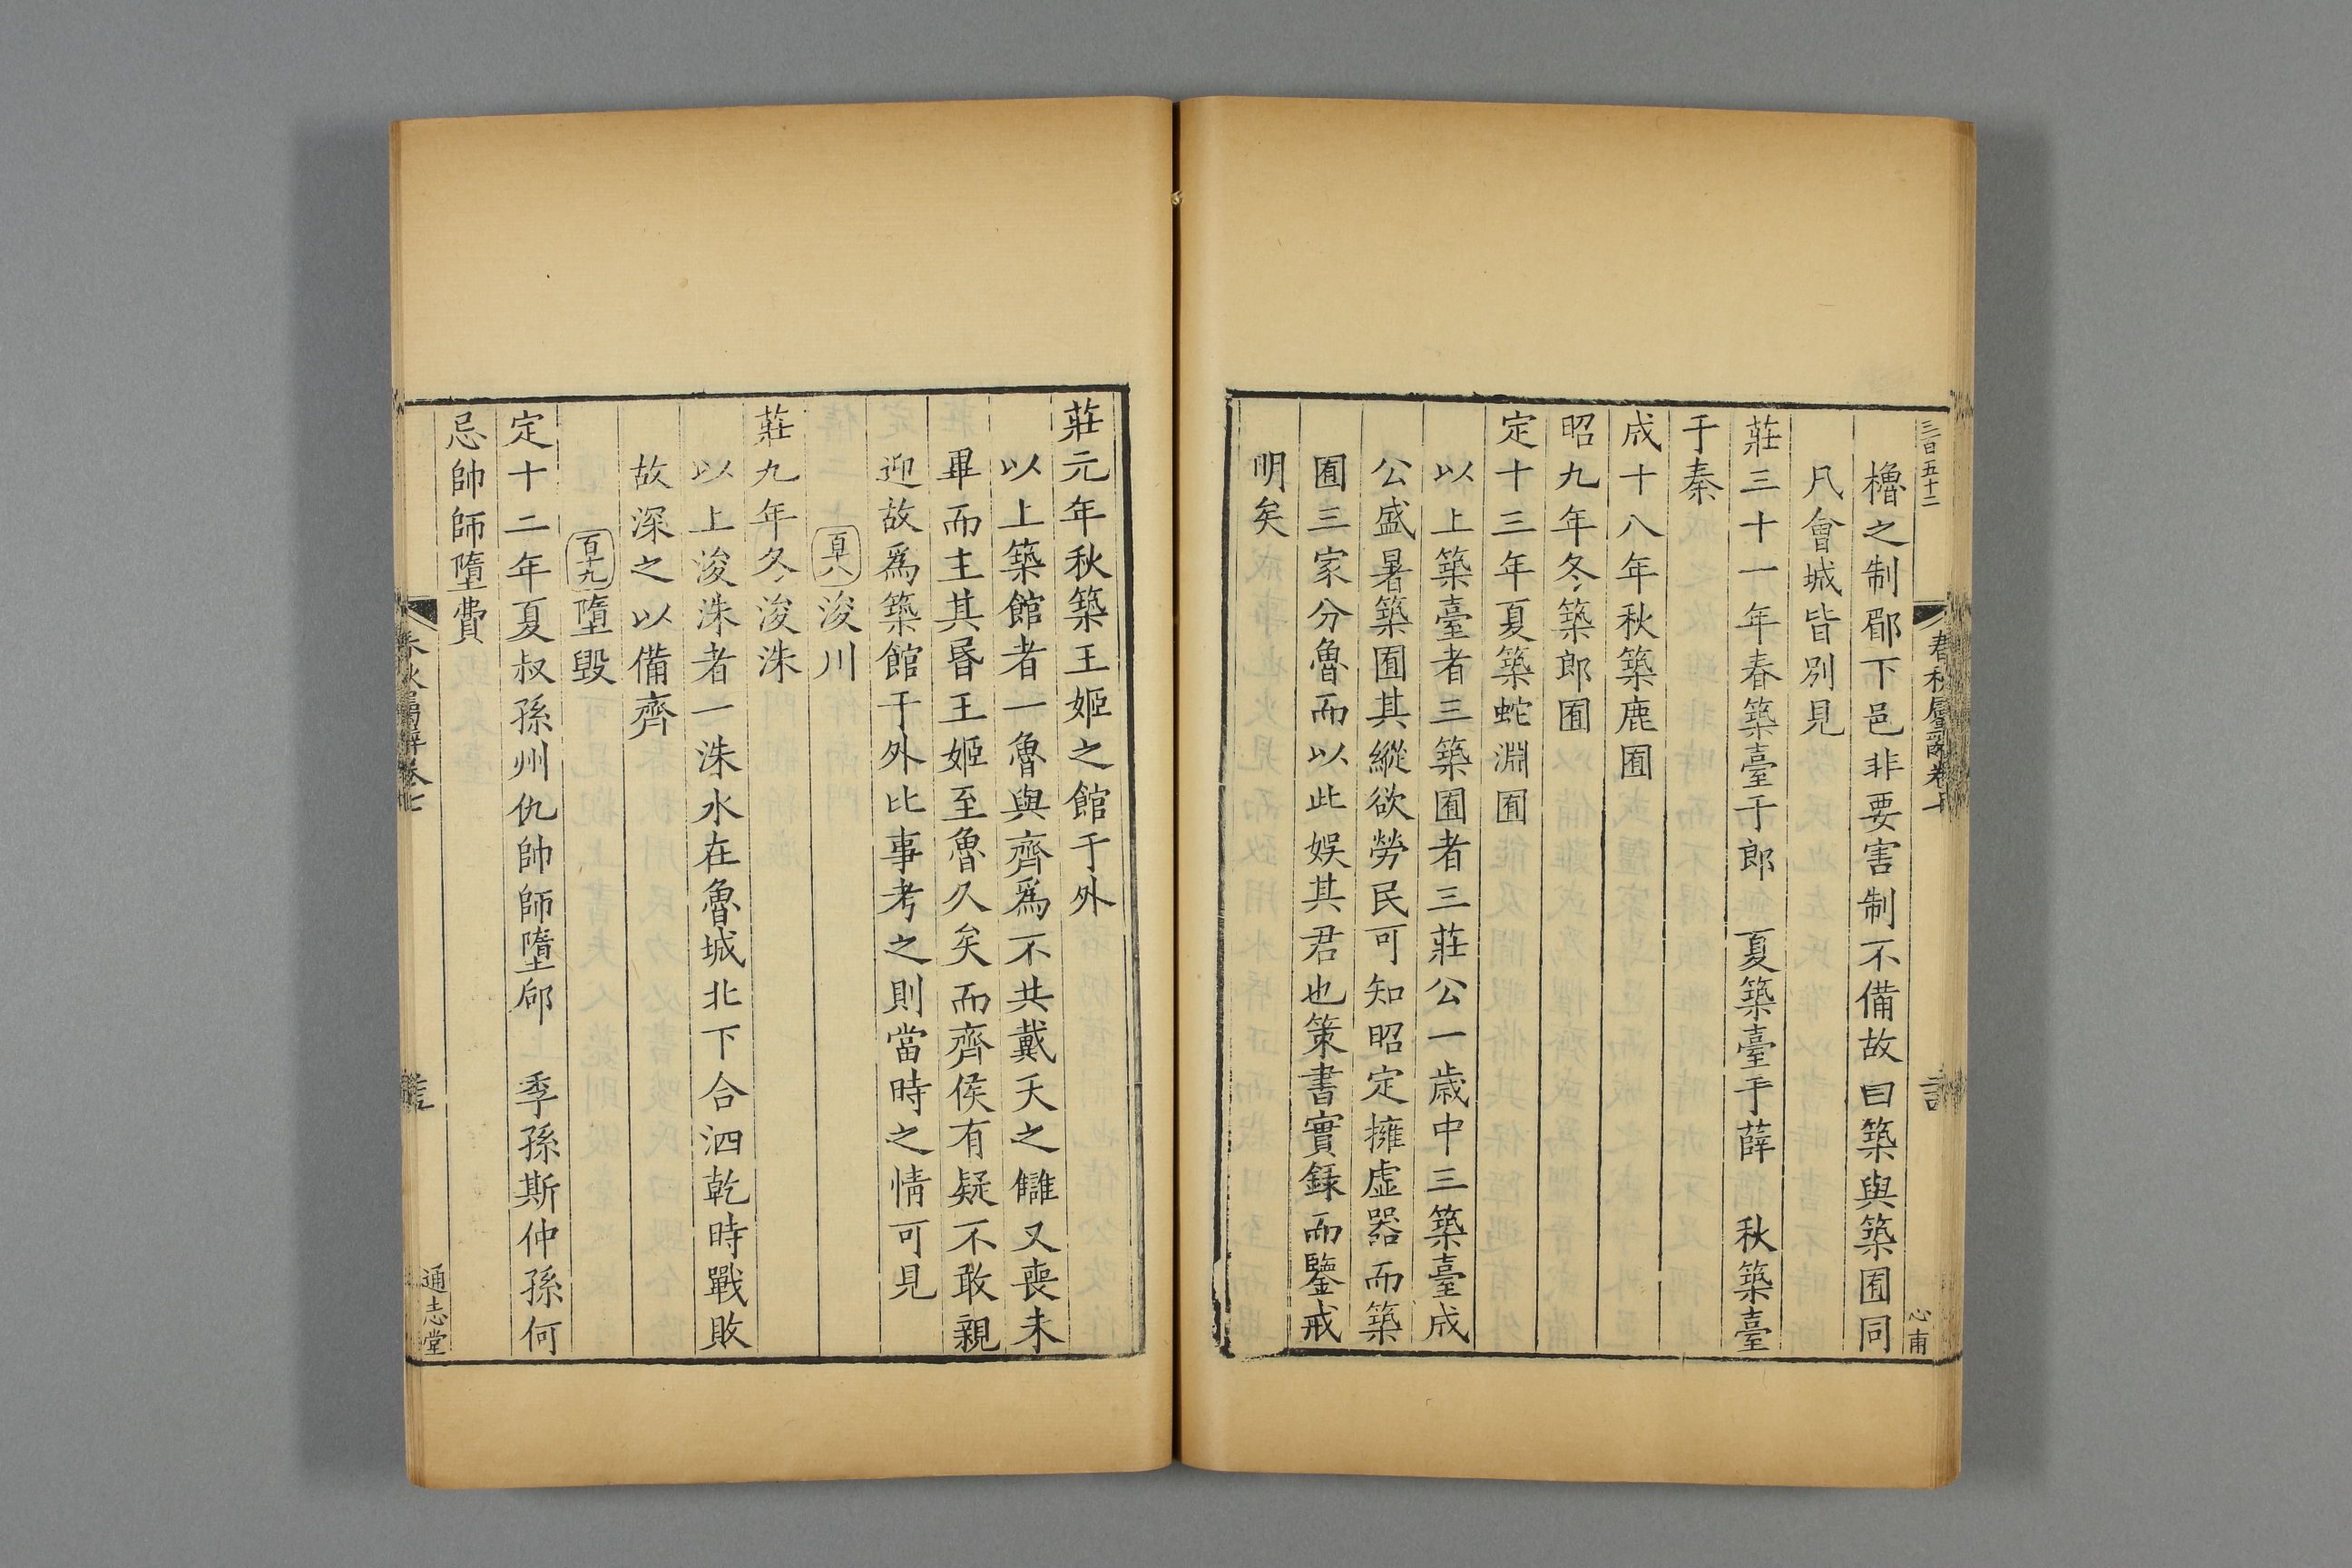 三百五十二
心甫
櫓之制郿下邑非要害制不備故曰築與築囿同
凡會城皆別見
莊三十一年春築臺于郎　夏築臺于薛　秋築臺
于秦
成十八年秋築鹿囿
昭九年冬築郎囿
定十三年夏築蛇淵囿
以上築臺者三築囿者三莊公一歲中三築臺成
公盛暑築囿其縱欲勞民可知昭定擁虛器而築
囿三家分魯而以此娛其君也策書實錄而鑒戒
明矣
莊元年秋築王姬之館于外
以上築館者一魯與齊爲不共戴天之讎又喪未
畢而主其昏王姬至魯久矣而齊侯有疑不敢親
迎故爲築館于外比事考之則當時之情可見
百十八浚川
莊九年冬浚洙
以上浚洙者一洙水在魯城北下合泗乾時戰敗
故深之以備齊
百十九墮毀
定十二年夏叔孫州仇帥師墮郈　季孫斯仲孫何
忌帥師墮費
春秋屬辭卷七
通志堂